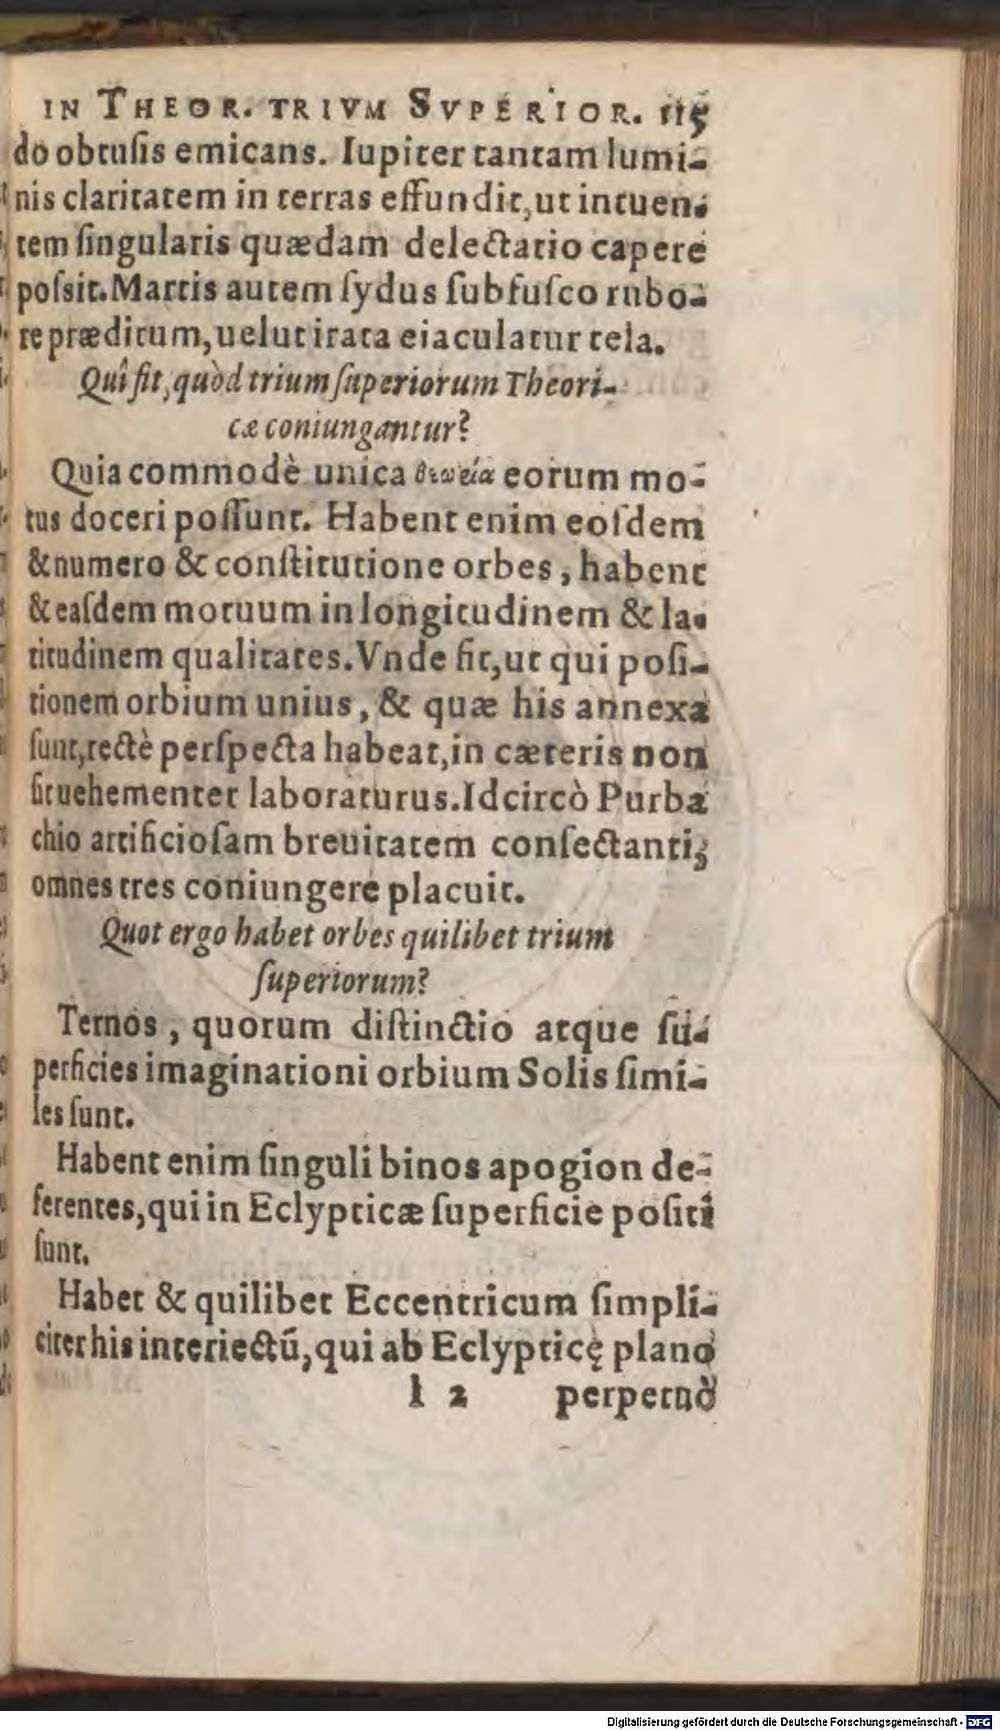 IN THEOR. TRIVM SVPERIOR. 115
do obtusis emicans. Iupiter tantam lumi-
nis claritatem in terras effundit, ut intuen-
tem singularis quædam delectatio capere
possit. Martis autem sydus subfusco rubo-
re præditum, uelut irata eiaculatur tela.
Quî fit, quòd trium superiorum Theori-
cæ coniungantur?
Quia commodè unica θεωρία eorum mo-
tus doceri possunt. Habent enim eosdem
& numero & constitutione orbes, habent
& easdem motuum in longitudinem & la-
titudinem qualitates. Vnde fit, ut qui posi-
tionem orbium unius, & quæ his annexa
sunt, rectè perspecta habeat, in cæteris non
sit uehementer laboraturus. Idcircò Purba
chio artificiosam breuitatem consectanti,
omnes tres coniungere placuit.
Quot ergo habet orbes quilibet trium
superiorum?
Ternos, quorum distinctio atque su-
perficies imaginationi orbium Solis simi-
les sunt.
Habent enim singuli binos apogion de-
ferentes, qui in Eclypticæ superficie positi
sunt.
Habet & quilibet Eccentricum simpli-
citer his interiectū, qui ab Eclypticę plano
l 2 perpetuò
Digitalisierung gefördert durch die Deutsche Forschungsgemeinschaft - DFG